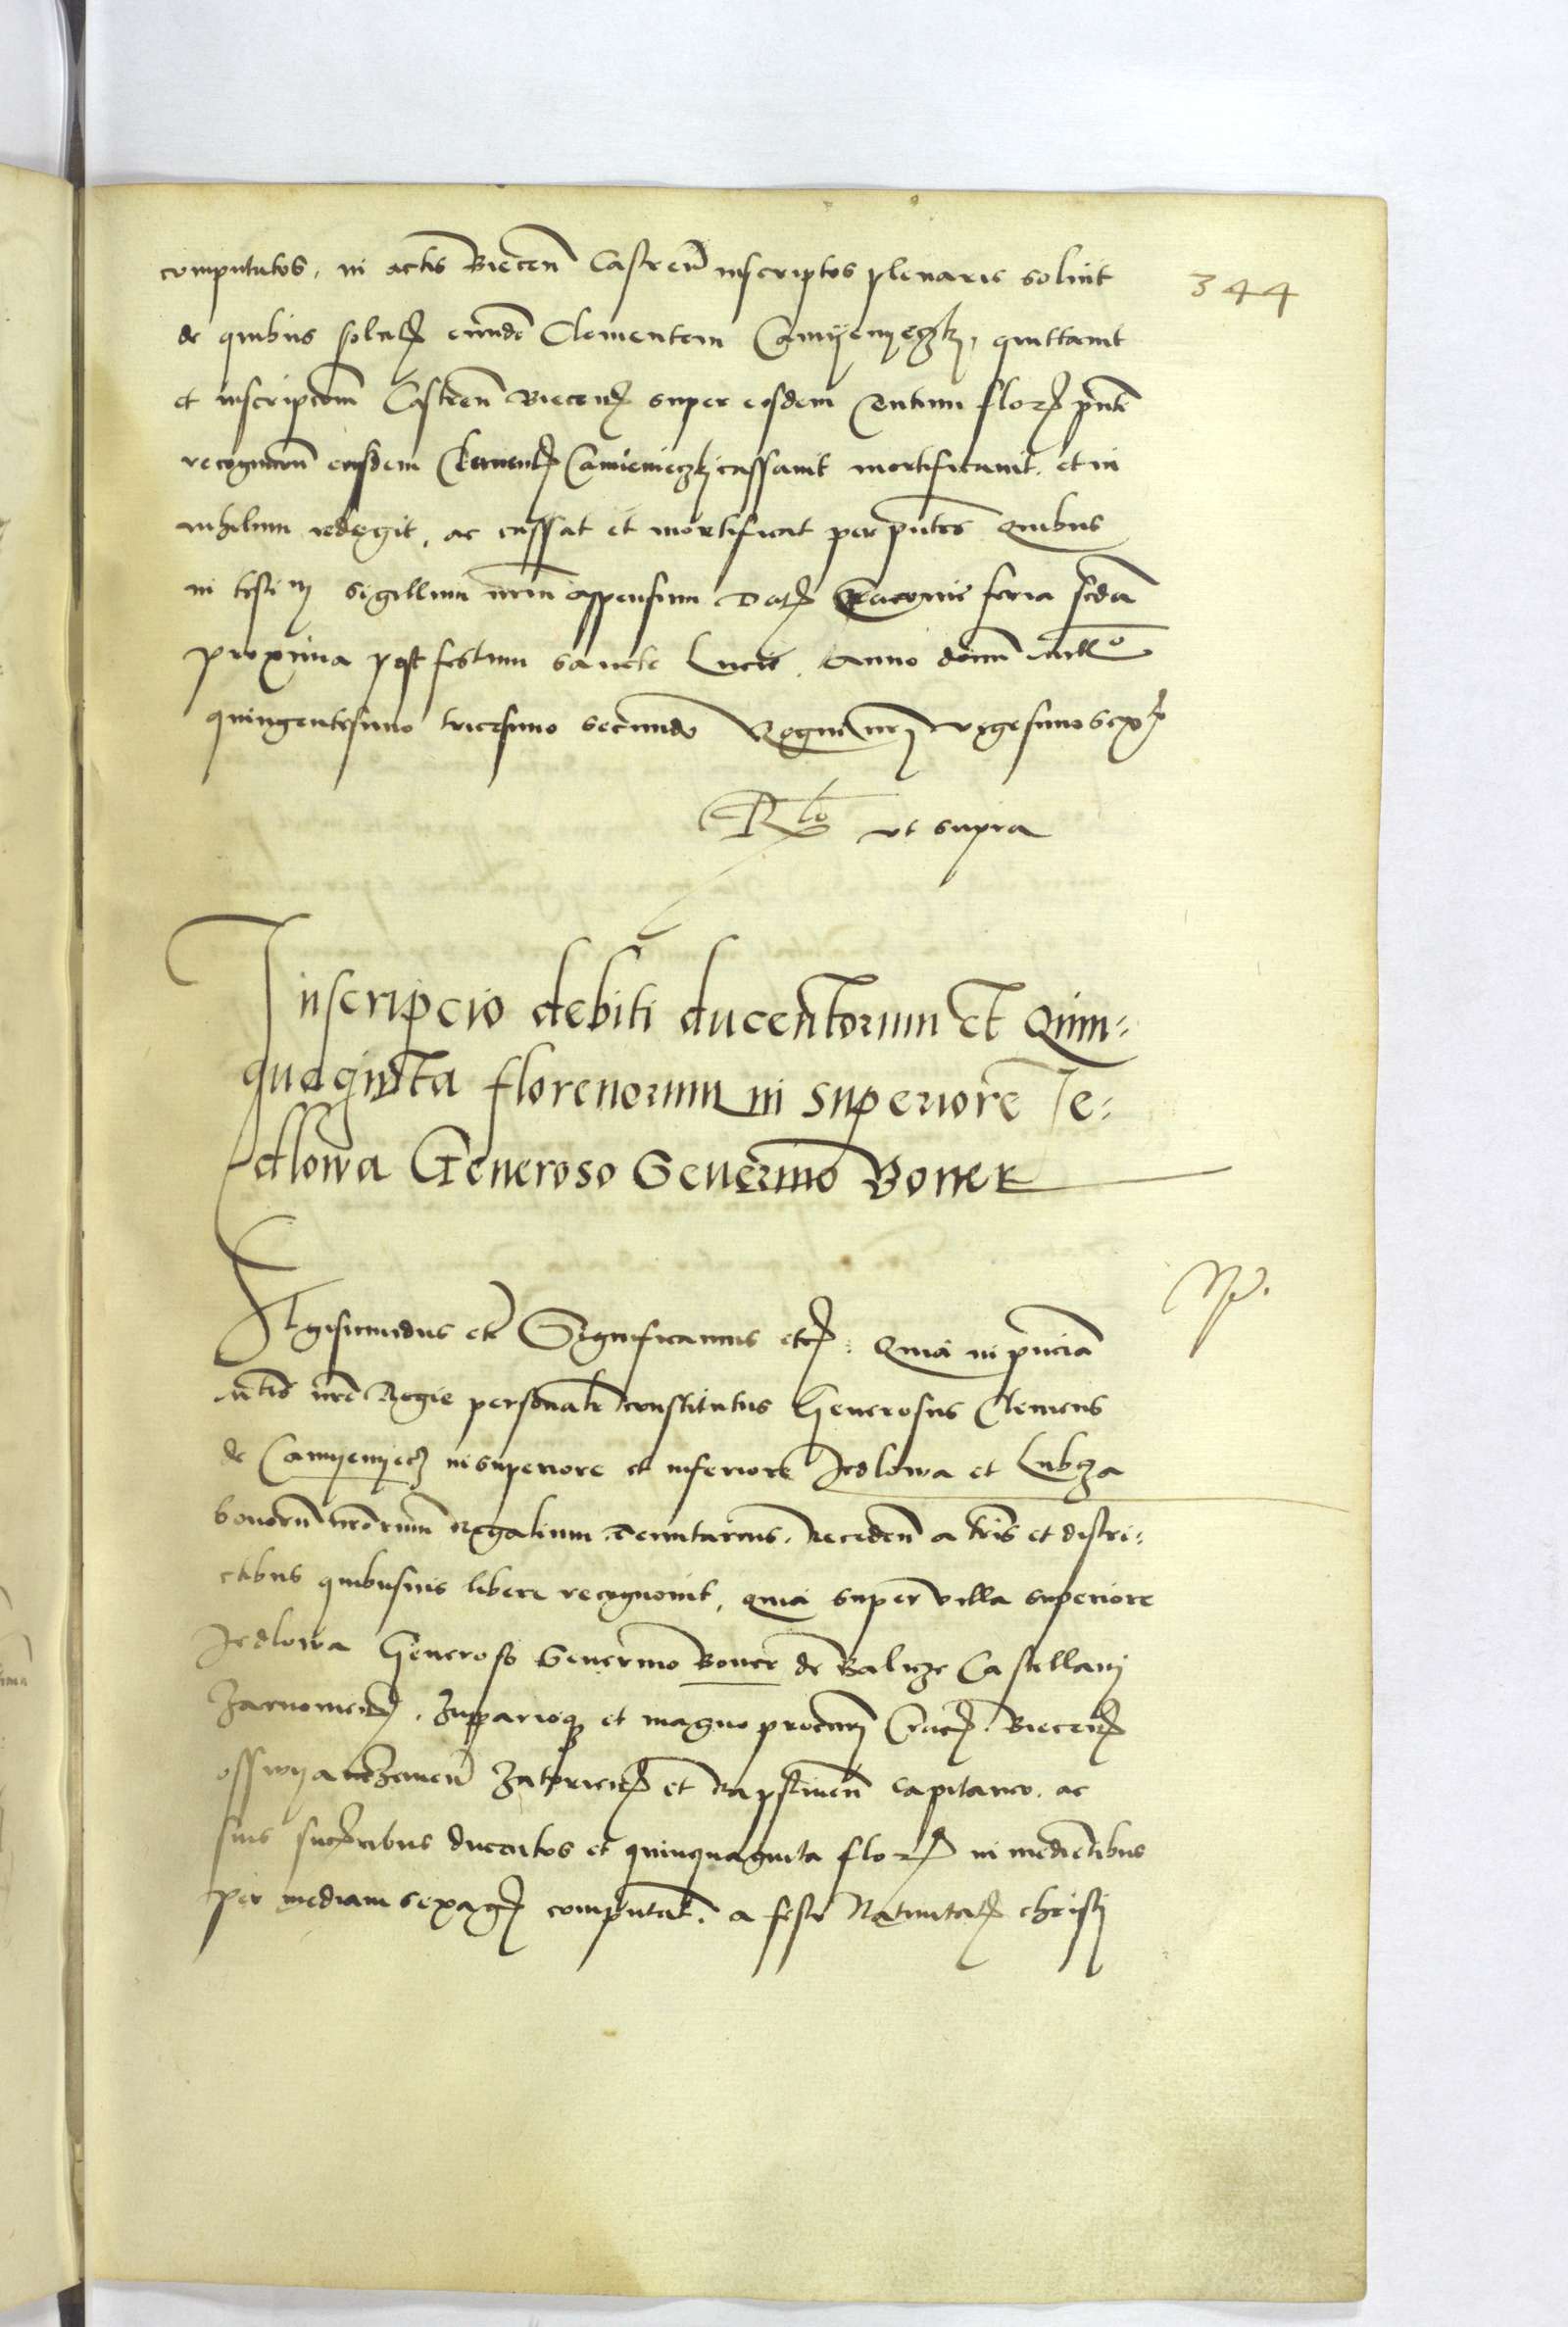 344
computatos, in actis Biecen̄ Castren̄ inscriptos plenarie solvit
de quibus solut̄ eundē Clementem Camyenyeczkj, quittavit
et inscripcōm Castren̄ Biecen̄ super eosdem Centum flor̄ p̄nti
recognicōn̄ eiusdem Clement̄ Camienieczkj cassavit mortificavit. et in
nihilum redegit, ac cassat et mortificat per p̄ntes Quibus
in testim̄ sigillum nr̄m appensum Dat̄ Cracovie feria scd̄a
proxima post festum sancte Lucie. Anno domī Mill̄o
quingentesimo tricesimo secundo Regni nrī vigesimosext̄
R̄lo vt supra
Inscripcio debiti ducentorum et Quin=
quaginta florenorum in superiore Je=
dlowa Generoso Severino Boner
Np.
Sigismundus etc̄ Significamus etc̄. Quia in p̄ncia
M̄tis nr̄e Regie personalr̄ constitutus Generosus Clemens
de Camyenyecz in superiore et inferiore Jedlowa et Lubcza
bonorū nr̄orum Regalium Tenutarius. Recedeñ a tr̄is et distri=
ctibus quibusuis libere recognovit, quia super villa superiore
Jedlowa Generoso Severino Boner de Balicze Castellanj
Zarnowien̄, Zuppario q̄ et magno procurī Crac̄. Biecen̄
osswyanczimen̄ Zatorien̄ et Rapstinen̄ Capitaneo. ac
suis succ̄ribus ducentos et quinquaginta flor̄ in medietatibus
per mediam sexagen̄ computan̄. a festo Natiuitat̄ christj